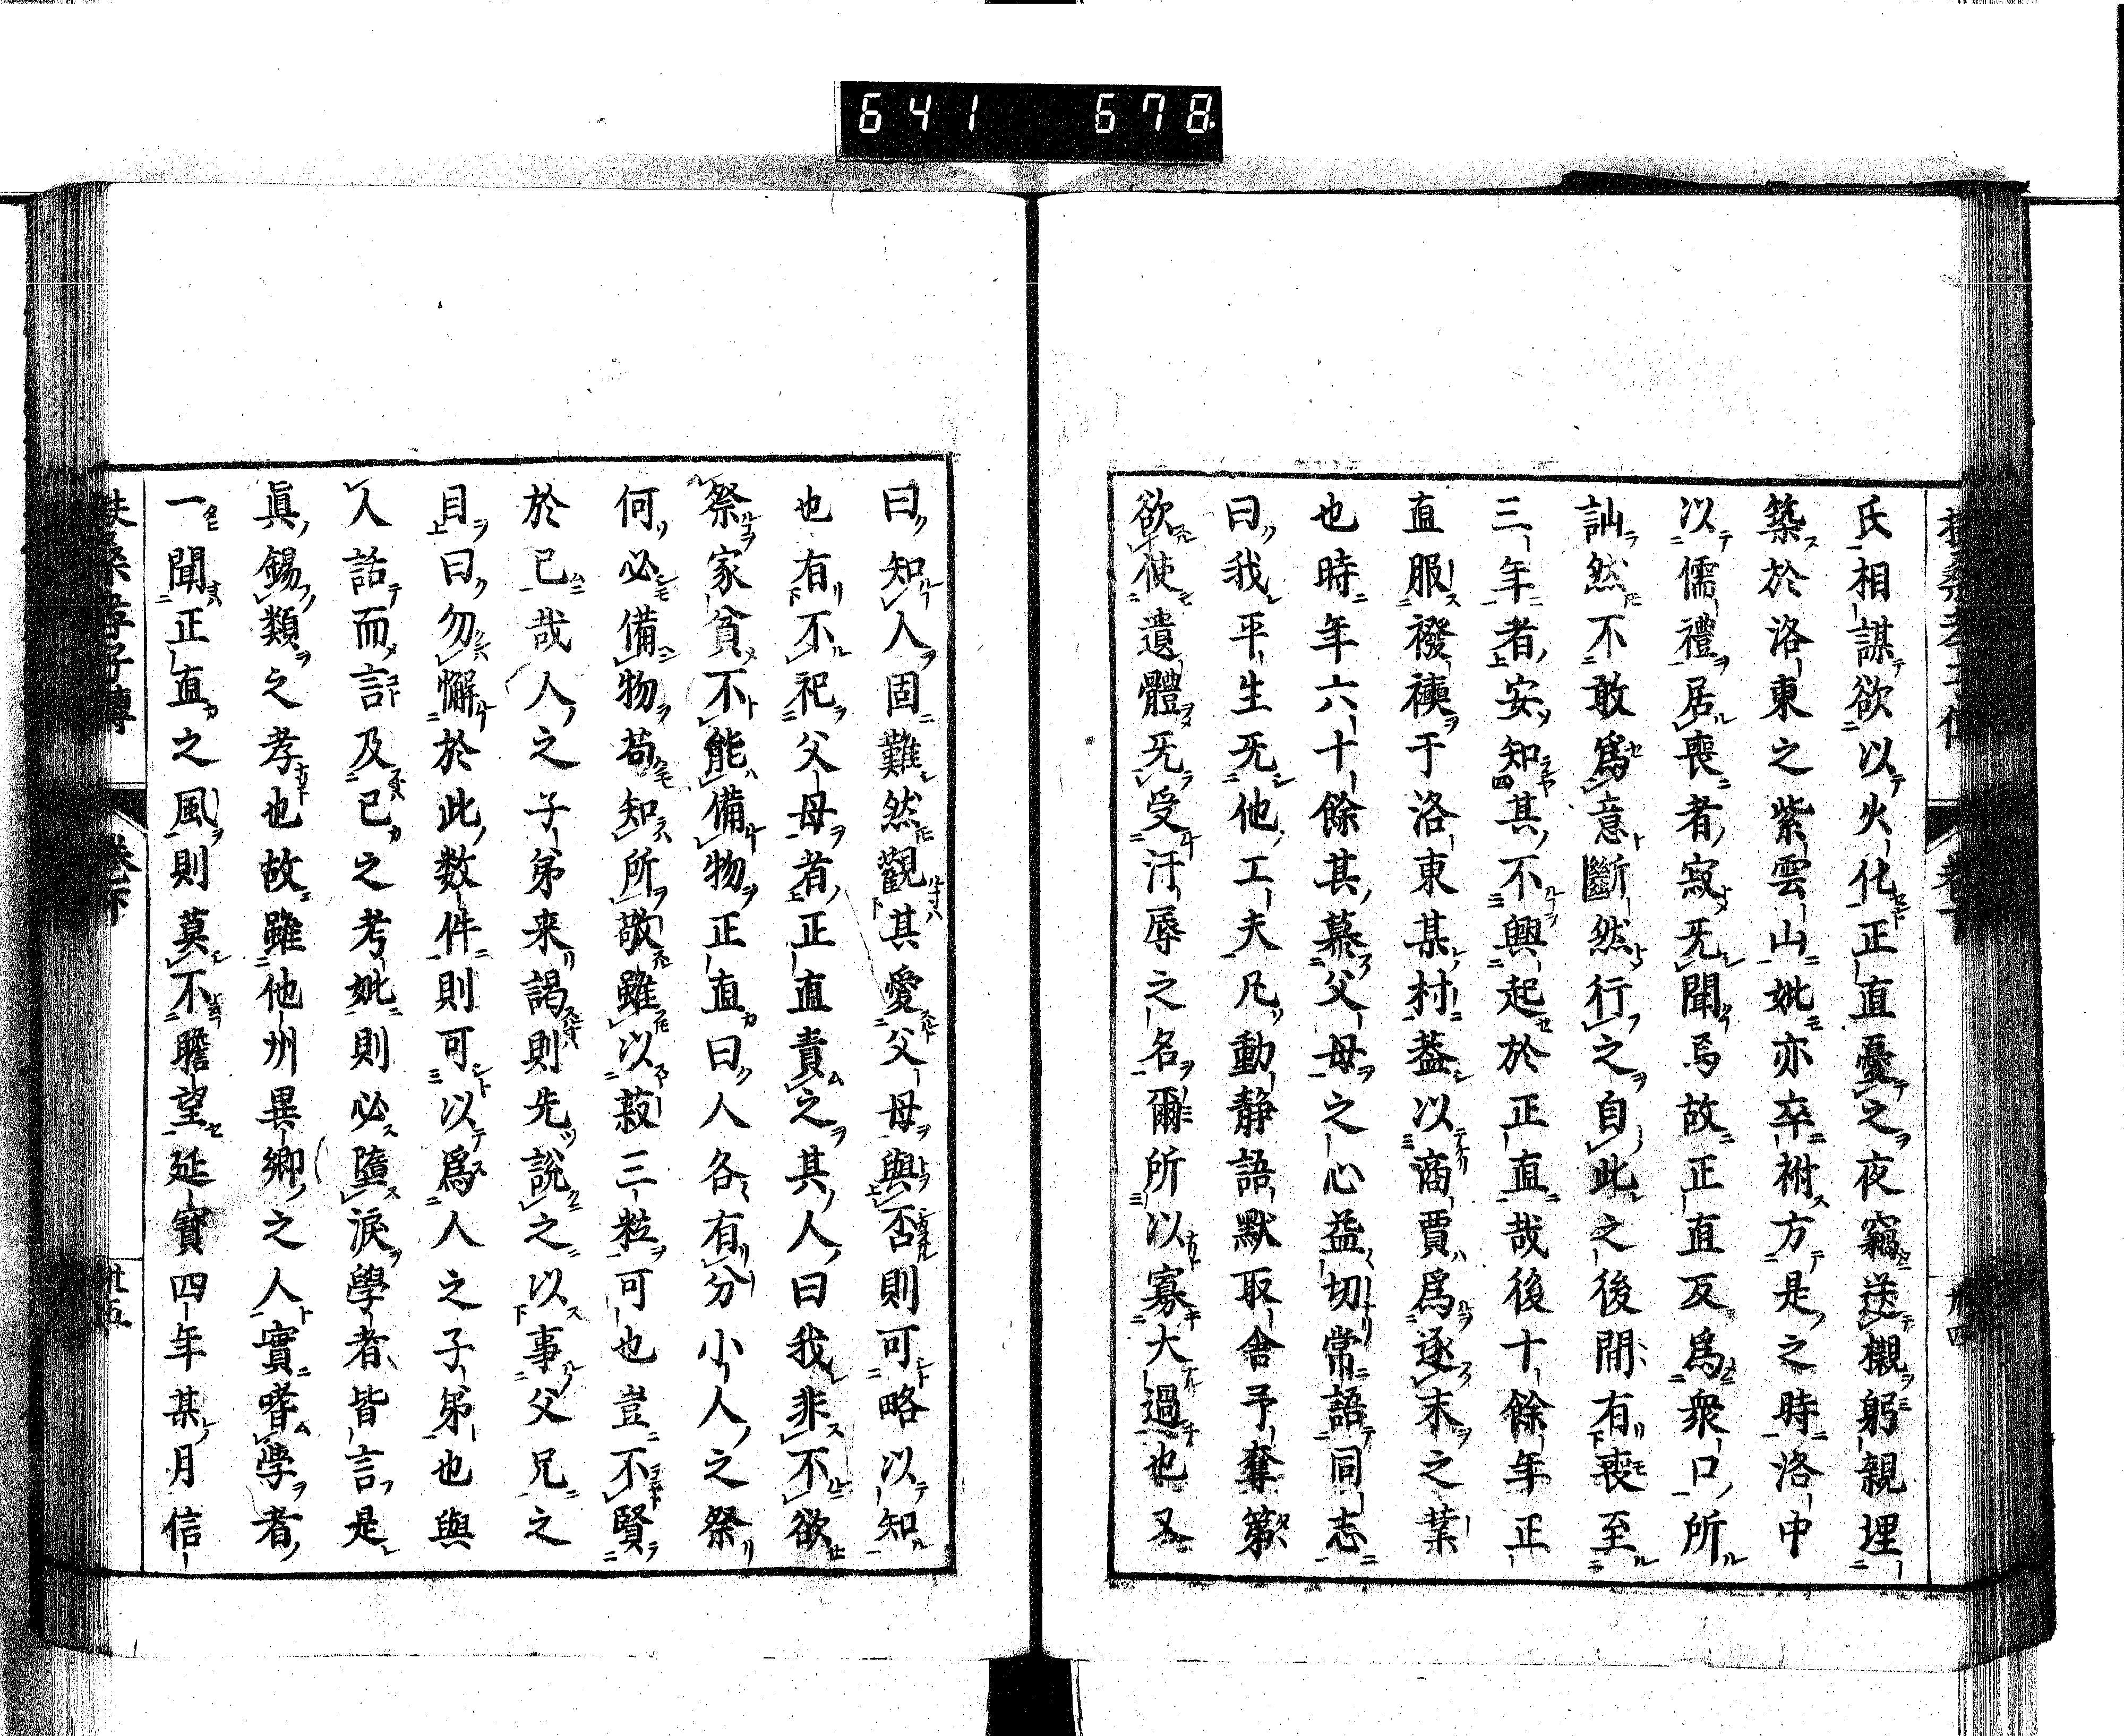 641 678
氏相謀欲以火化正直憂之夜竊送櫬躬親埋
築於洛東之紫雲山妣亦卒祔方是之時洛中
以儒禮居喪者寂无聞焉故正直反爲衆口所
訕然不敢爲意斷然行之自此之後間有喪至
三年者安知其不興起於正直哉後十餘年正
直服襏襫于洛東某村蓋以商賈爲逐末之業
也時年六十餘其慕父母之心益切常語同志
曰我平生无他工夫凡動静語默取舍予奪第
欲使遺體无受汙辱之名爾所以寡大過也又
曰知人固難然觀其愛父母與否則可略以知
也有不祀父母者正直責之其人曰我非不欲
祭家貧不能備物正直曰人各有分小人之祭
何必備物苟知所敬雖以菽三粒可也豈不賢
於已哉人之子弟来謁則先說之以事父兄之
目曰勿懈於此数件則可以爲人之子弟也與
人話而言及已之考妣則必墮淚學者皆言是
眞錫類之孝也故雖他州異郷之人實嗜學者
一聞正直之風則莫不瞻望延寳四年某月信
扶桑孝子傳 卷下 廿五